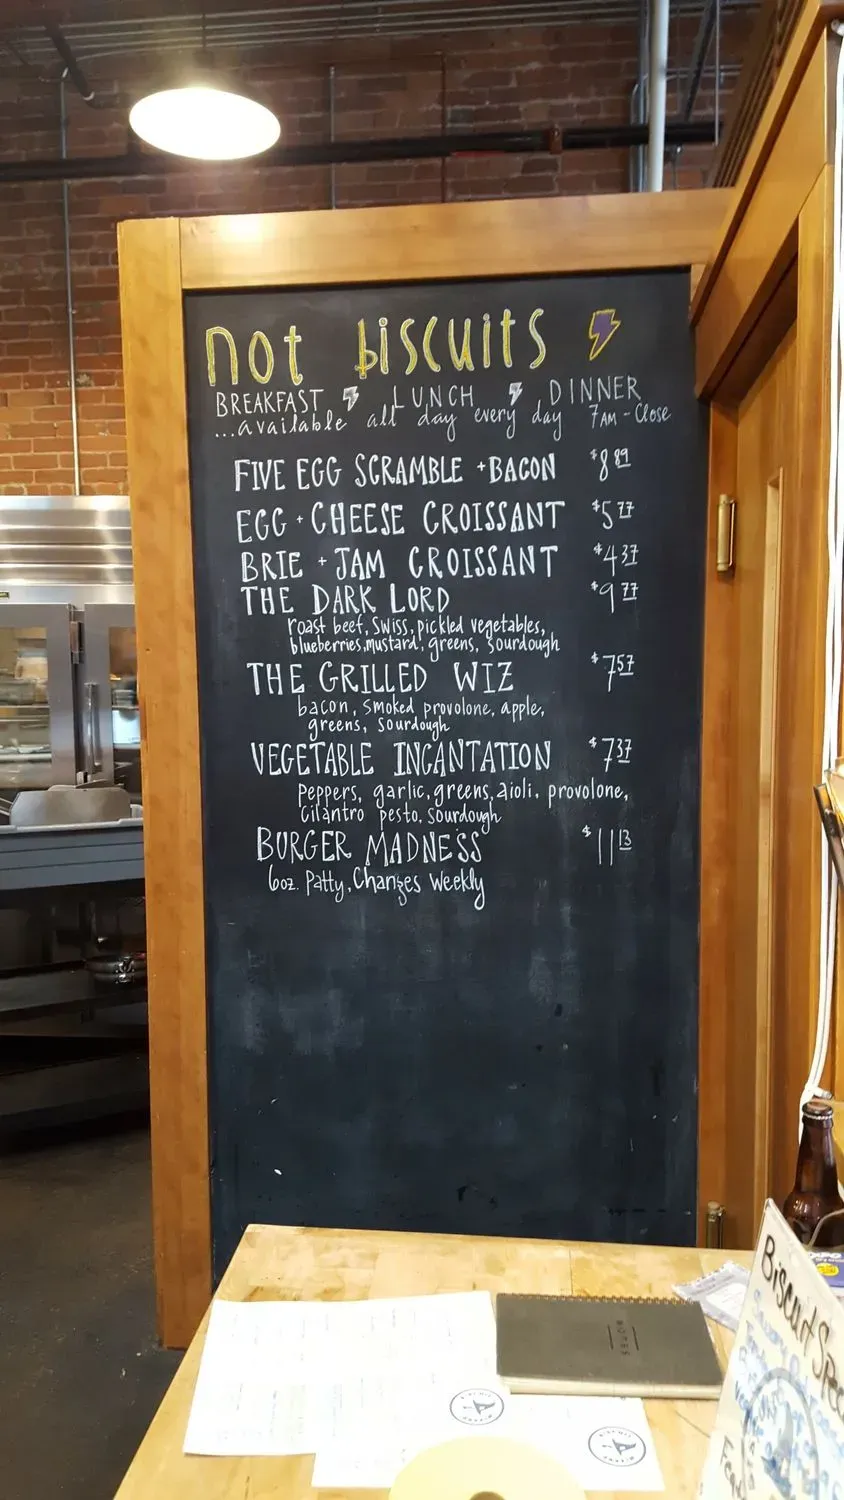 not biscuits
BREAKFAST LUNCH DINNER
...available all day every day 7AM - Close
FIVE EGG SCRAMBLE + BACON $8.89
EGG + CHEESE CROISSANT $5.77
BRIE + JAM CROISSANT $4.37
THE DARK LORD $9.77
roast beef, Swiss, pickled vegetables,
blueberries, mustard, greens, sourdough
THE GRILLED WIZ $7.57
bacon, smoked provolone, apple,
greens, sourdough
VEGETABLE INCANTATION $7.37
Peppers, garlic, greens, aioli, provolone,
cilantro pesto, sourdough
BURGER MADNESS $11.13
6oz. Patty, Changes Weekly
NOTES
Biscuit